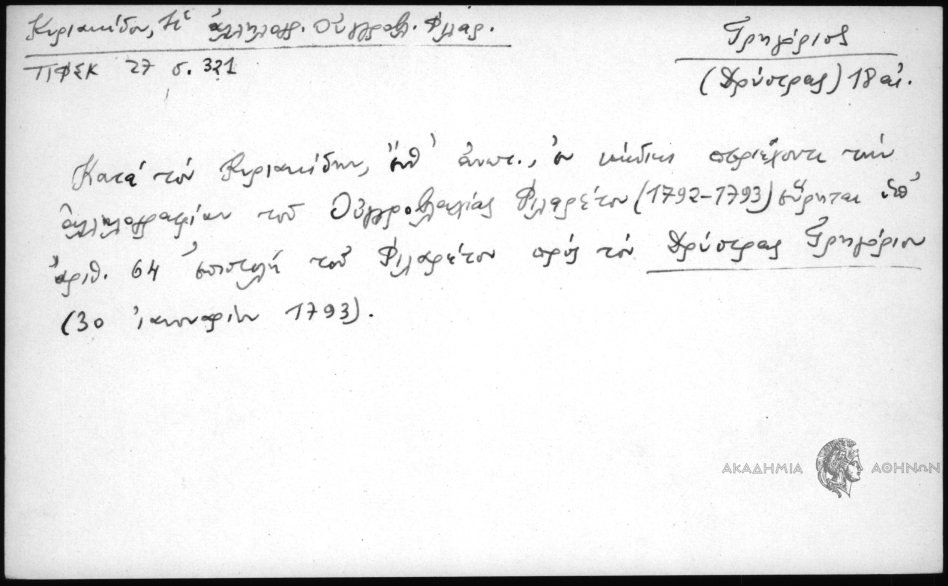 Κυριακίδου, Ἡ ἀλληλογρ. Οὐγγροβλ. Φιλαρ.
ΠΦΣΚ 27 σ. 321
Γρηγόριος
(Δρύστρας) 18 αἰ.
Κατά τόν Κυριακίδην, ἔνθ' ἀνωτ., ἐν κώδικι περιέχοντι τήν
ἀλληλογραφίαν τοῦ Οὐγγροβλαχίας Φιλαρέτου (1792-1793) εὕρηται ὑπ'
ἀριθ. 64 ἐπιστολή τοῦ Φιλαρέτου πρός τόν Δρύστρας Γρηγόριον
(30 Ἰανουαρίου 1793).
ΑΚΑΔΗΜΙΑ ΑΘΗΝΩΝ